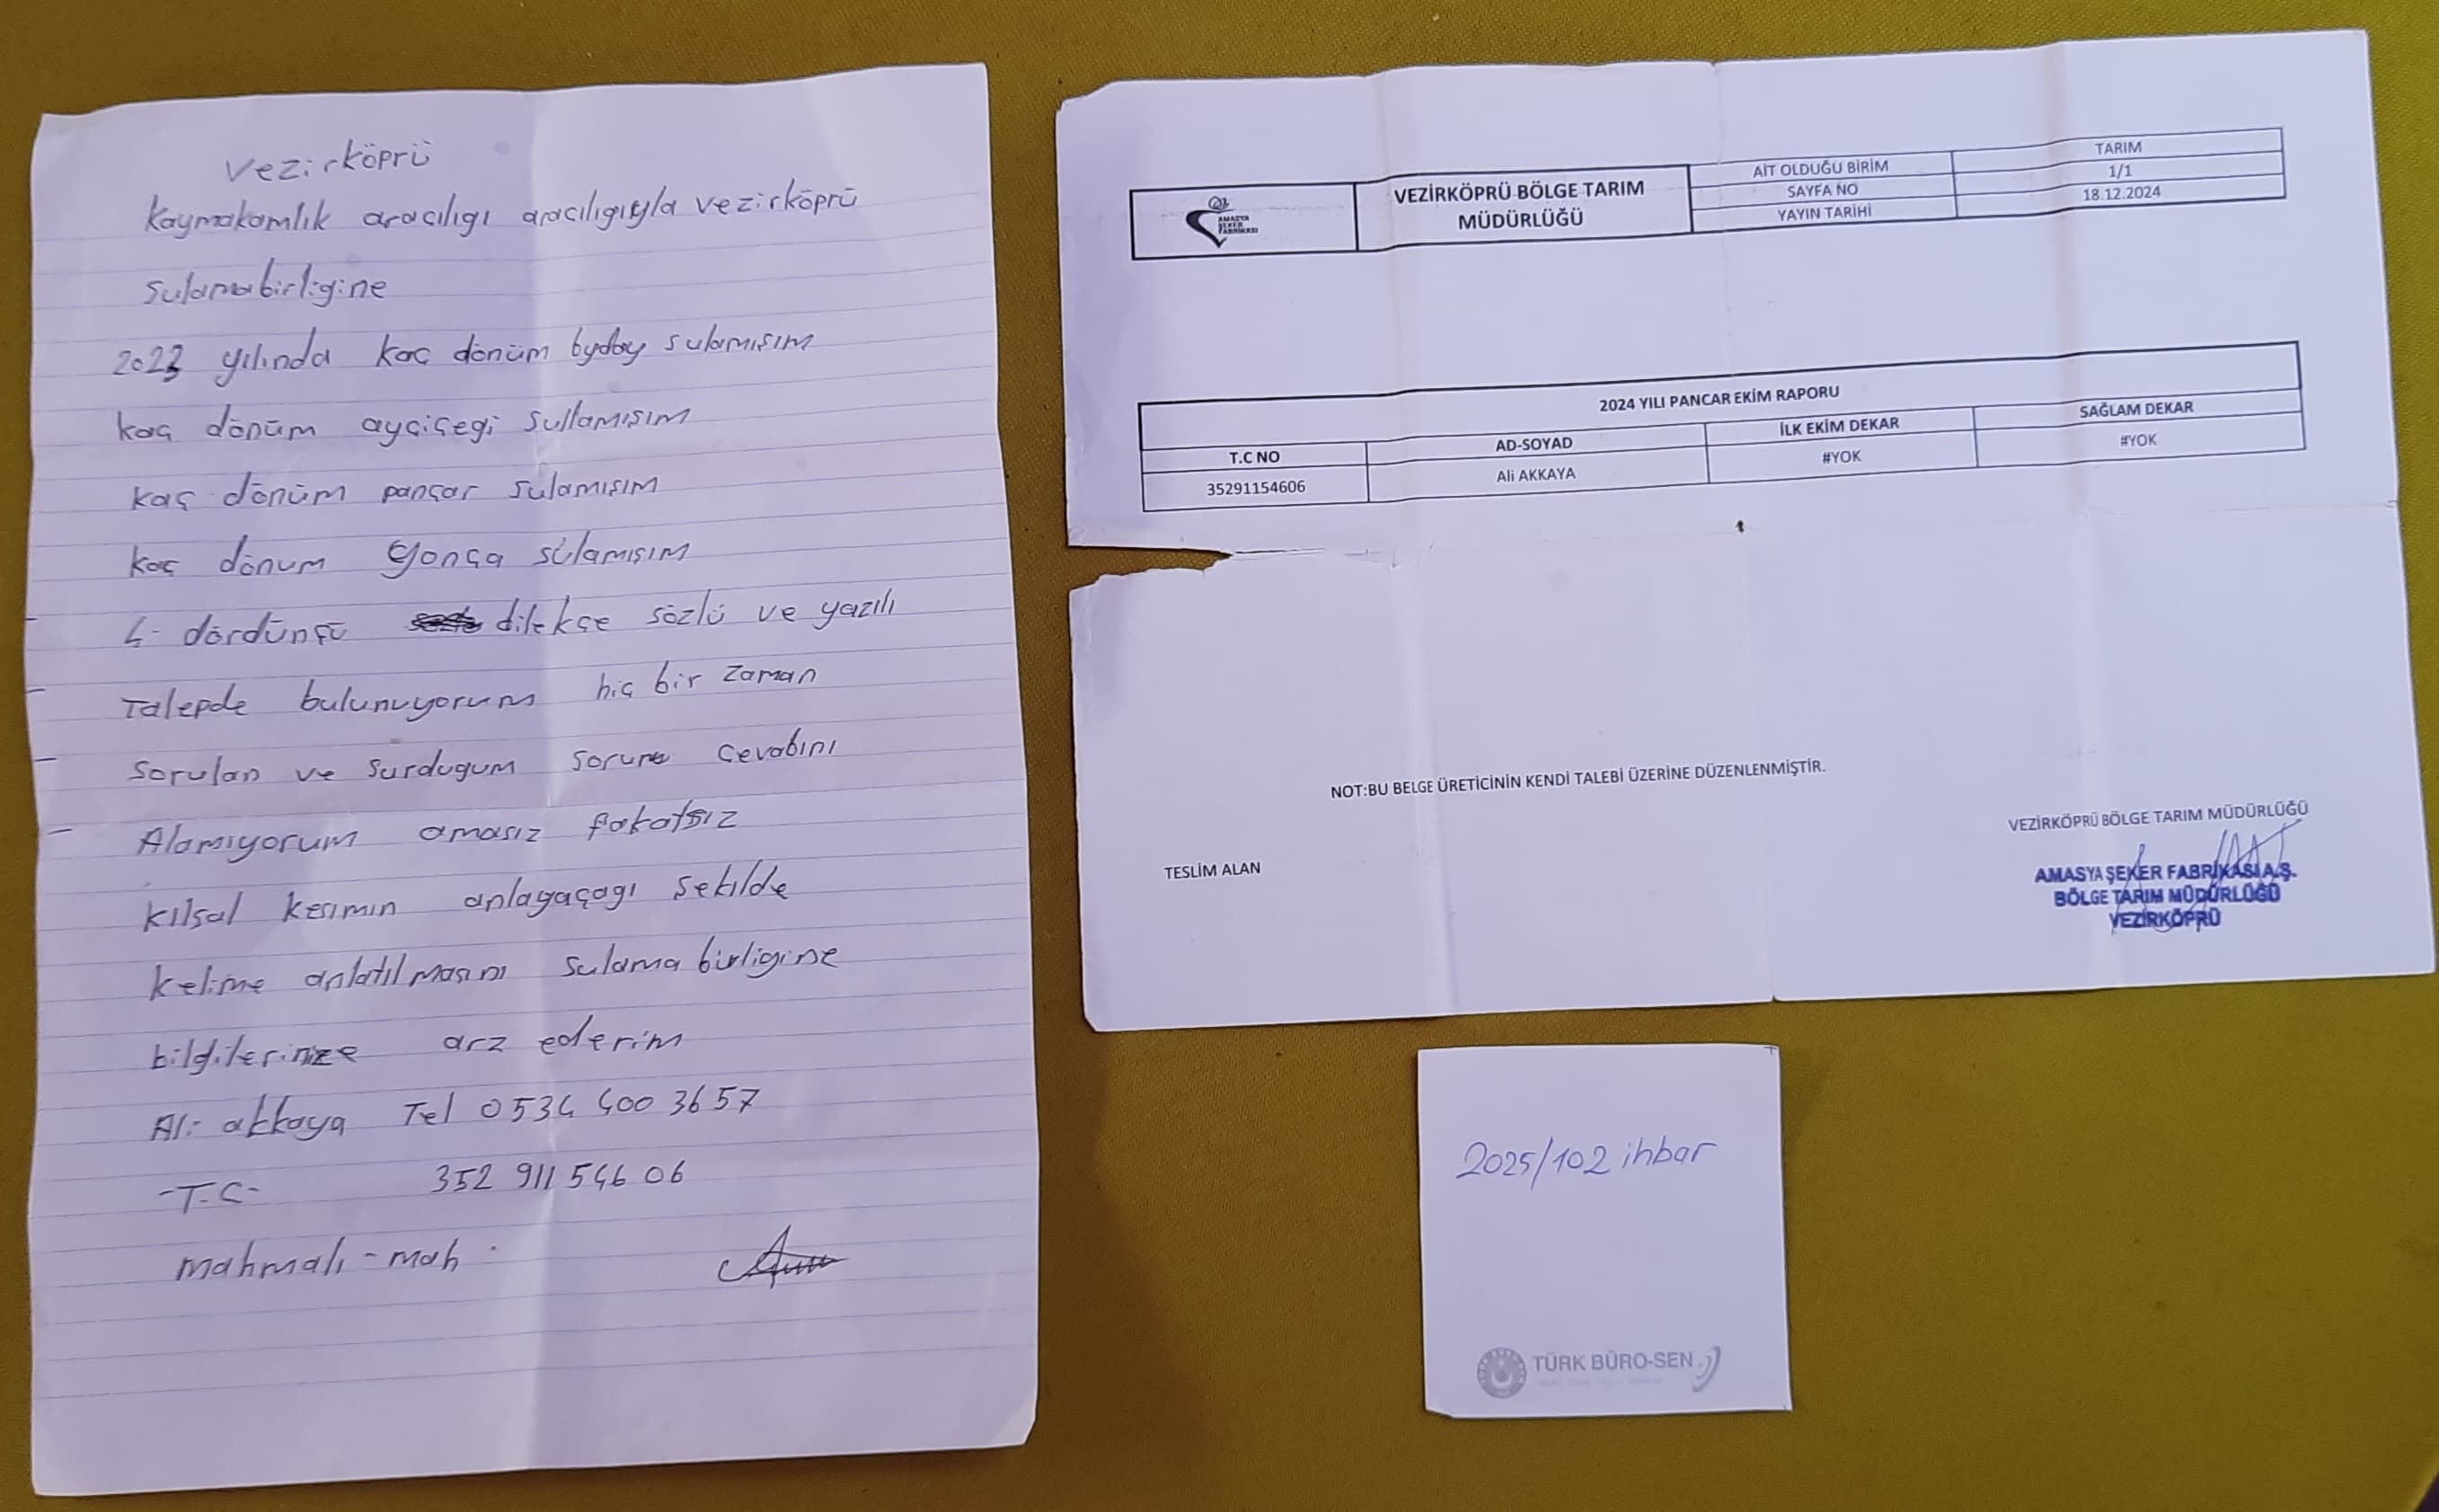 Vezirköprü
Kaymakamlık aracılıgı aracılıgıyla vezirköprü
Sulamabirligine
2023 yılında kaç dönüm bydoy sulamışım
kaç dönüm ayciçegi sullamışım
kaç dönüm pançar sulamışım
kaç dönum yonça sulamışım
4- dördünçü dilekçe sözlü ve yazılı
Talepde bulunuyorum hiç bir zaman
sorulan ve surdugum soruna cevabını
Alamıyorum amasız fakatsız
kılsal kesimin anlayaçagı şekilde
kelime anlatılmasını sulama birligine
bilgilerinize arz ederim
Ali akkaya Tel 0534 400 3657
-T.C- 352 911 546 06
mahmalı-mah
AMASYA ŞEKER FABRİKASI
VEZİRKÖPRÜ BÖLGE TARIM MÜDÜRLÜĞÜ
AİT OLDUĞU BİRİM TARIM
SAYFA NO 1/1
YAYIN TARİHİ 18.12.2024
2024 YILI PANCAR EKİM RAPORU
T.C NO AD-SOYAD İLK EKİM DEKAR SAĞLAM DEKAR
35291154606 Ali AKKAYA #YOK #YOK
NOT:BU BELGE ÜRETİCİNİN KENDİ TALEBİ ÜZERİNE DÜZENLENMİŞTİR.
VEZİRKÖPRÜ BÖLGE TARIM MÜDÜRLÜĞÜ
TESLİM ALAN
AMASYA ŞEKER FABRİKASI A.Ş.
BÖLGE TARIM MÜDÜRLÜĞÜ
VEZİRKÖPRÜ
2025/102 ihbar
TÜRK BÜRO-SEN